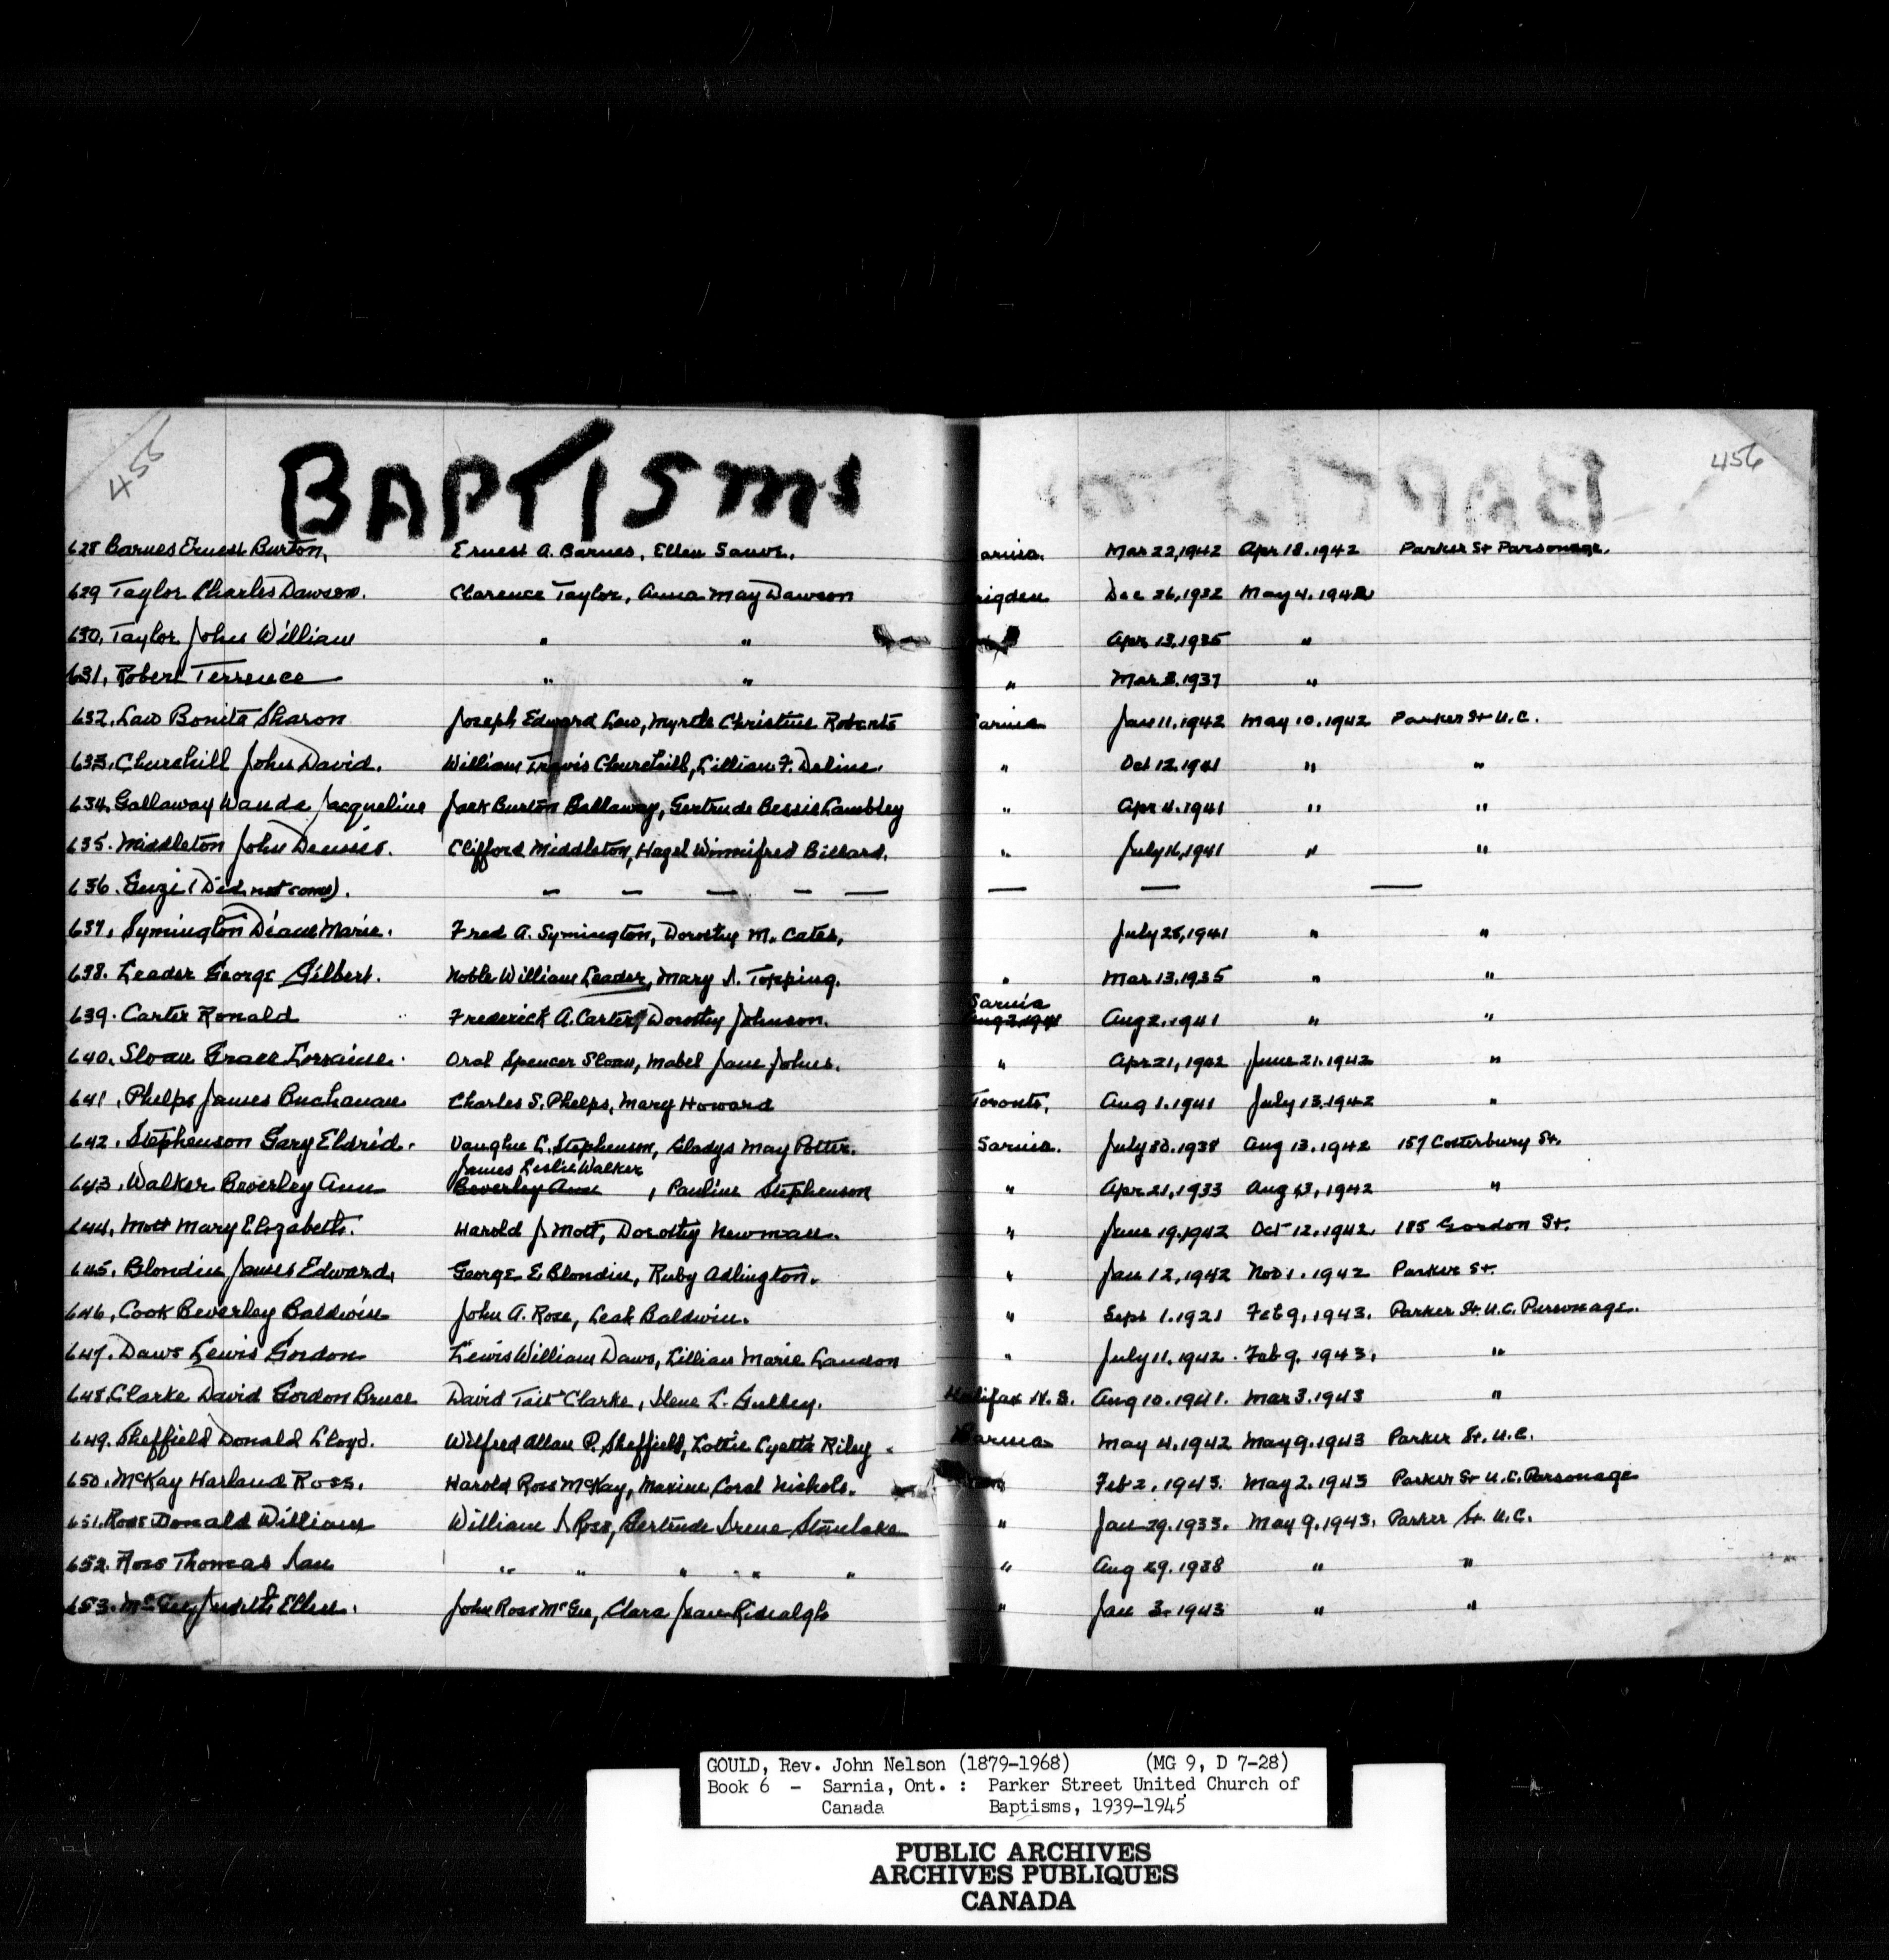 455
456
BAPTISMS
628 Barnes Ernest Burton, Ernest A. Barnes, Ellen Sauve. arnia. Mar 22, 1942 Apr 18. 1942 Parker St Parsonage.
629 Taylor Charles Dawson. Clarence Taylor, Anna May Dawson rigden Dec 26, 1932 May 4. 1942
630, Taylor John William " " Apr 13, 1935 "
631, Robert Terrence " " " Mar 8. 1937 "
632, Law Bonita Sharon Joseph Edward Law, Myrtle Christine Roberts Sarnia Jan 11. 1942 May 10. 1942 Parker St U.C.
633. Churchill John David. William Travis Churchill, Lillian F. Deline. " Oct 12. 1941 " "
634. Gallaway Wanda Jacqueline Jack Burton Gallaway, Gertrude Bessie Lambley " Apr 4. 1941 " "
635. Middleton John Dennis. Clifford Middleton, Hazel Winnifred Billard. " July 16, 1941 " "
636. Guzi (Did not come). — — — — — — — —
637, Symington Diane Marie. Fred A. Symington, Dorothy M. Cates, July 25, 1941 " "
638. Leader George Gilbert. Noble William Leader, Mary I. Topping. " Mar. 13. 1935 " "
639. Carter Ronald Frederick A. Carter, Dorothy Johnson. Sarnia Aug 2 1941 Aug 2. 1941 " "
640. Sloan Grace Lorraine. Oral Spencer Sloan, Mabel Jane Johns. " Apr 21, 1942 June 21. 1942 "
641, Phelps James Buchanan Charles S. Phelps, Mary Howard Toronto, Aug 1. 1941 July 13. 1942 "
642. Stephenson Gary Eldrid. Vaughn L. Stephenson, Gladys May Potter. Sarnia. July 30. 1938 Aug 13. 1942 157 Cotterbury St.
James Leslie Walker
643, Walker Beverley Ann Beverley Ann, Pauline Stephenson " Apr 21, 1933 Aug 13, 1942 "
644, Mott Mary Elizabeth. Harold J Mott, Dorothy Newman. " June 19. 1942 Oct 12. 1942 185 Gordon St.
645. Blondin James Edward, George E Blondin, Ruby Adlington. " Jan 12, 1942 Nov 1. 1942 Parker St.
646, Cook Beverley Baldwin John A. Rose, Leah Baldwin. " Sept 1. 1921 Feb 9, 1943. Parker St. U.C. Parsonage.
647. Daws Lewis Gordon Lewis William Daws, Lillian Marie Landon " July 11. 1942. Feb 9. 1943, "
648. Clarke David Gordon Bruce David Tait Clarke, Ilene L. Gulley. Halifax N.S. Aug 10. 1941. Mar 3. 1943 "
649. Sheffield Donald Lloyd. Wilfred Allan P. Sheffield, Lottie Lyetta Riley. Sarnia May 4. 1942 May 9. 1943 Parker St. U.C.
650. McKay Harland Ross. Harold Ross McKay, Maxine Coral Nichols. Feb 2. 1943. May 2. 1943 Parker St U.C. Parsonage
651. Ross Donald William William I Ross, Gertrude Irene Stanlake " Jan 29. 1933. May 9. 1943. Parker St. U.C.
652. Ross Thomas Ian " " " " " " Aug 29. 1938 " "
653. McGee Judith Ellen. John Ross McGee, Clara Jean " Jan 3. 1943 " "
GOULD, Rev. John Nelson (1879-1968) (MG 9, D 7-28)
Book 6 - Sarnia, Ont. : Parker Street United Church of
Canada Baptisms, 1939-1945
PUBLIC ARCHIVES
ARCHIVES PUBLIQUES
CANADA